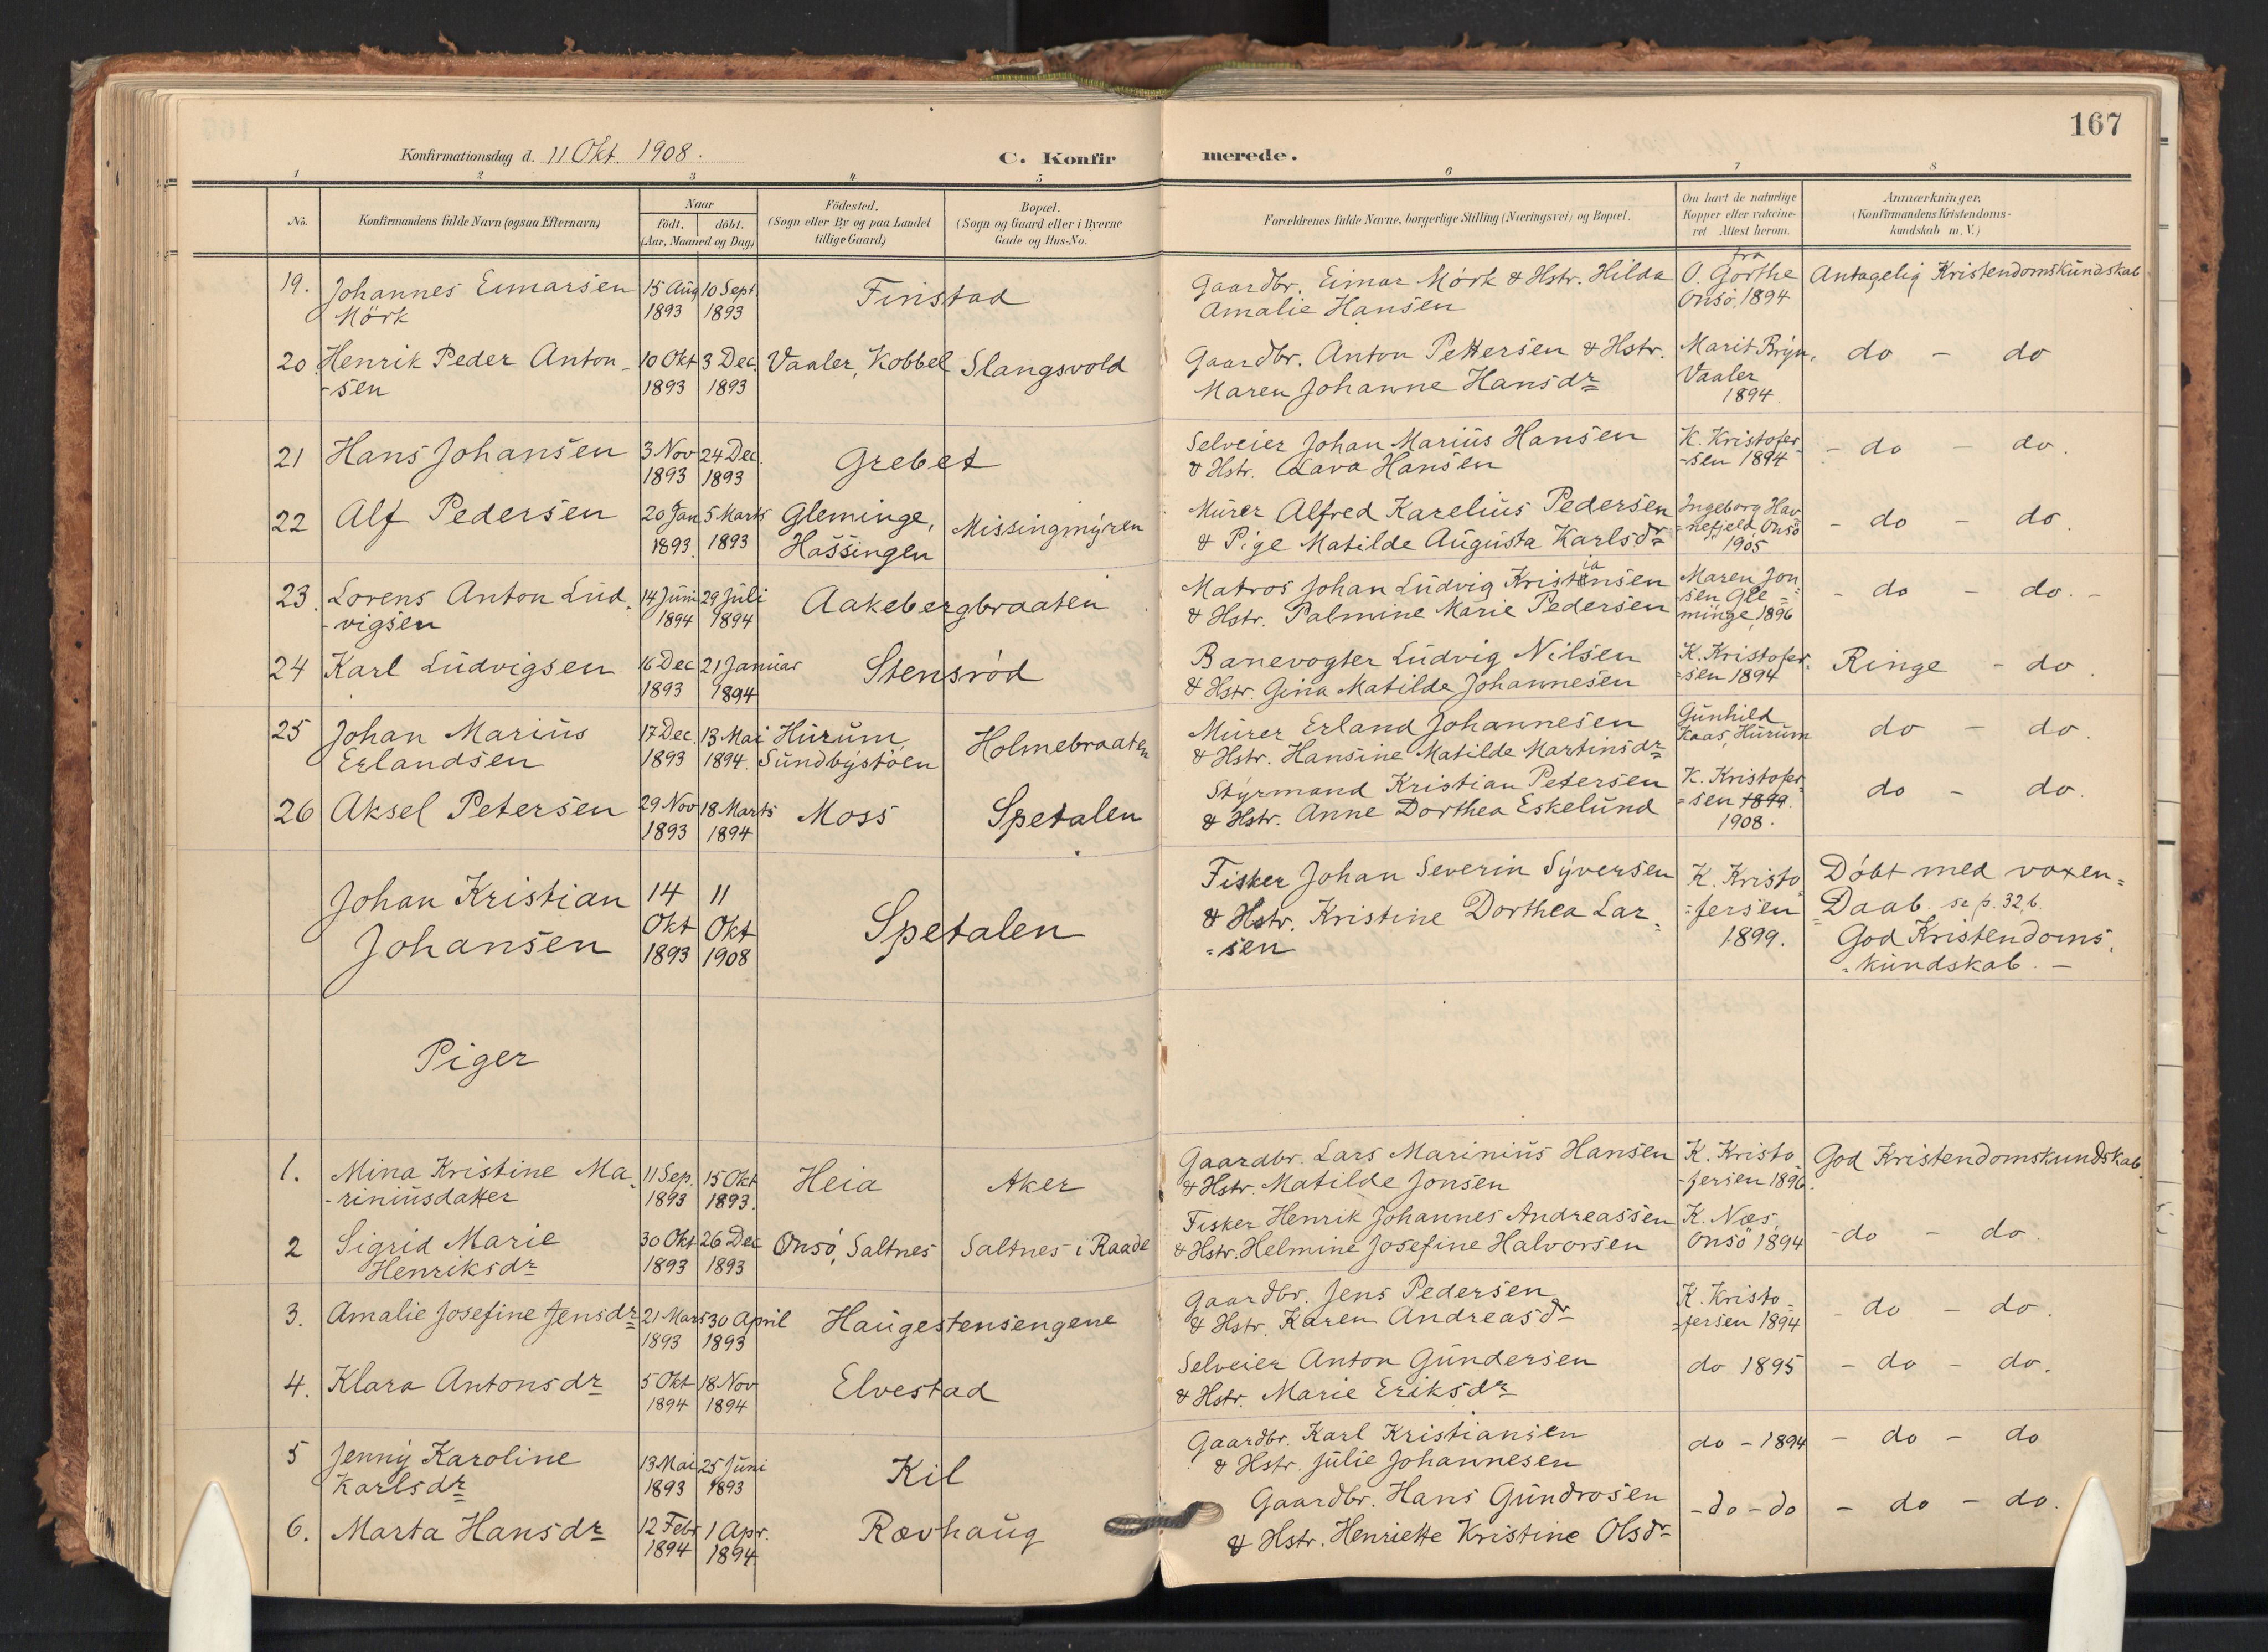 167
Konfirmationsdag d. 11 Okt. 1908.
C. Konfirmerede.
1 2 3 4 5 6 7 8
No.
Konfirmandens fulde Navn (ogsaa Efternavn)
Naar
født. døbt.
(Aar, Maaned og Dag)
Fødested.
(Sogn eller By og paa Landet
tillige Gaard)
Bopæl.
(Sogn og Gaard eller i Byerne
Gade og Hus-No.
Forældrenes fulde Navne, borgerlige Stilling (Næringsvei) og Bopæl.
Om havt de naturlige
Kopper eller vakcine-
ret Attest herom.
Anmærkninger.
(Konfirmandens Kristendoms-
kundskab m. V.)
19. Johannes Eimarsen 15 Aug 10 Sept. Finstad Gaardbr. Eimar Mörk & Hstr. Hilda fra O. Gorthe Antagelig Kristendomskundskab
Mörk 1893 1893 Amalie Hansen Onsö, 1894
20. Henrik Peder Anton- 10 Okt 3 Dec. Vaaler, Kobbel Slangsvold Gaardbr. Anton Pettersen & Hstr. Marit Bryn, do - do
-sen 1893 1893 Maren Johanne Hansdr Vaaler
1894.
21 Hans Johansen 3 Nov 24 Dec. Grebet Selveier Johan Marius Hansen K. Kristofer- - do - do.
1893 1893 & Hstr. Lava Hansen -sen 1894
22 Alf Pedersen 20 Jan 5 Marts Gleminge, Missingmyren Murer Alfred Karelius Pedersen Ingeborg Hav- - do - do.
1893. 1893 Hassingen & Pige Matilde Augusta Karlsdr =nefjeld, Onsö
1905
23. Lorens Anton Lud- 14 Juni 29 Juli Aakebergbraaten Matros Johan Ludvig Kristiansen Maren Jon- - do - do. -
-vigsen 1894 1894 & Hstr. Palmine Marie Pedersen -sen Gle-
minge, 1896
24 Karl Ludvigsen 16 Dec 21 Januar Stensrød Banevogter Ludvig Nilsen K. Kristofer- Ringe - do.
1893 1894 & Hstr. Gina Matilde Johannesen =sen 1894
25 Johan Marius 17 Dec. 13 Mai Hurum, Holmebraaten Murer Erland Johannesen Gunhild do - do.
Erlandsen 1893 1894. Sundbystöen & Hstr. Hansine Matilde Martinsdr Kaas, Hurum
26 Aksel Petersen 29 Nov 18 Marts Moss Spetalen Styrmand Kristian Petersen K. Kristofer- do - do.
1893 1894 & Hstr. Anne Dorthea Eskelund =sen 1899.
1908.
Johan Kristian 14 11 Spetalen Fisker Johan Severin Syversen K. Kristo- Døbt med voxen=
Johansen Okt Okt & Hstr. Kristine Dorthea Lar- =fersen =Daab. se p. 32, b.
1893 1908 =sen 1899. God Kristendoms-
=kundskab. -
Piger
1. Mina Kristine Ma- 11 Sep. 15 Okt Heia Aker Gaardbr. Lars Marinius Hansen K. Kristo- God Kristendomskundskab.
-riniusdatter 1893 1893. & Hstr. Matilde Jonsen -fersen 1896.
2 Sigrid Marie 30 Okt 26 Dec Onsø, Saltnes Saltnes i Raade Fisker Henrik Johannes Andreassen K. Næs, -do - do.
Henriksdr 1893 1893 & Hstr. Helmine Josefine Halvorsen Onsö 1894
3. Amalie Josefine Jensdr 21 Mars 30 April Haugestensengene Gaardbr. Jens Pedersen K. Kristo- - do - do.
1893 1893 & Hstr. Karen Andreasdr =fersen 1894
4. Klara Antonsdr 5 Okt 18 Nov Elvestad Selveier Anton Gundersen do 1895 - do - do.
1894 1894 & Hstr. Marie Eriksdr
5 Jenny Karoline 13 Mai 25 Juni Kil Gaardbr. Karl Kristiansen do - 1894 - do - do
Karlsdr 1893 1893 & Hstr. Julie Johannesen
6. Marta Hansdr 12 Febr 1 Apr. Rævhaug Gaardbr. Hans Gundrosen -do - do - do - do.
1894 1894. & Hstr. Henriette Kristine Olsdr